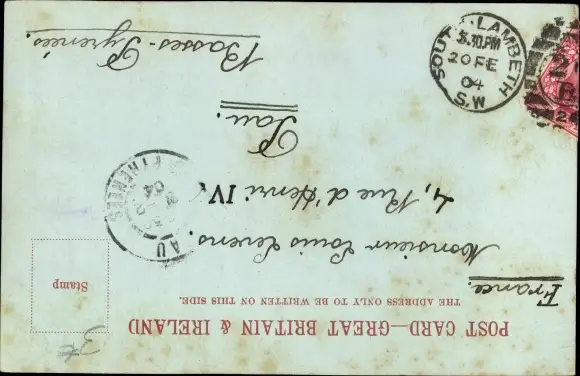 POST CARD—GREAT BRITAIN & IRELAND
THE ADDRESS ONLY TO BE WRITTEN ON THIS SIDE.
Stamp
France.
Monsieur Louis
4, Rue d'Henri IV
Pau.
Basses-Pyrenées.
SOUTH LAMBETH
8.30PM
20 FE
04
S.W
AU
04
3t